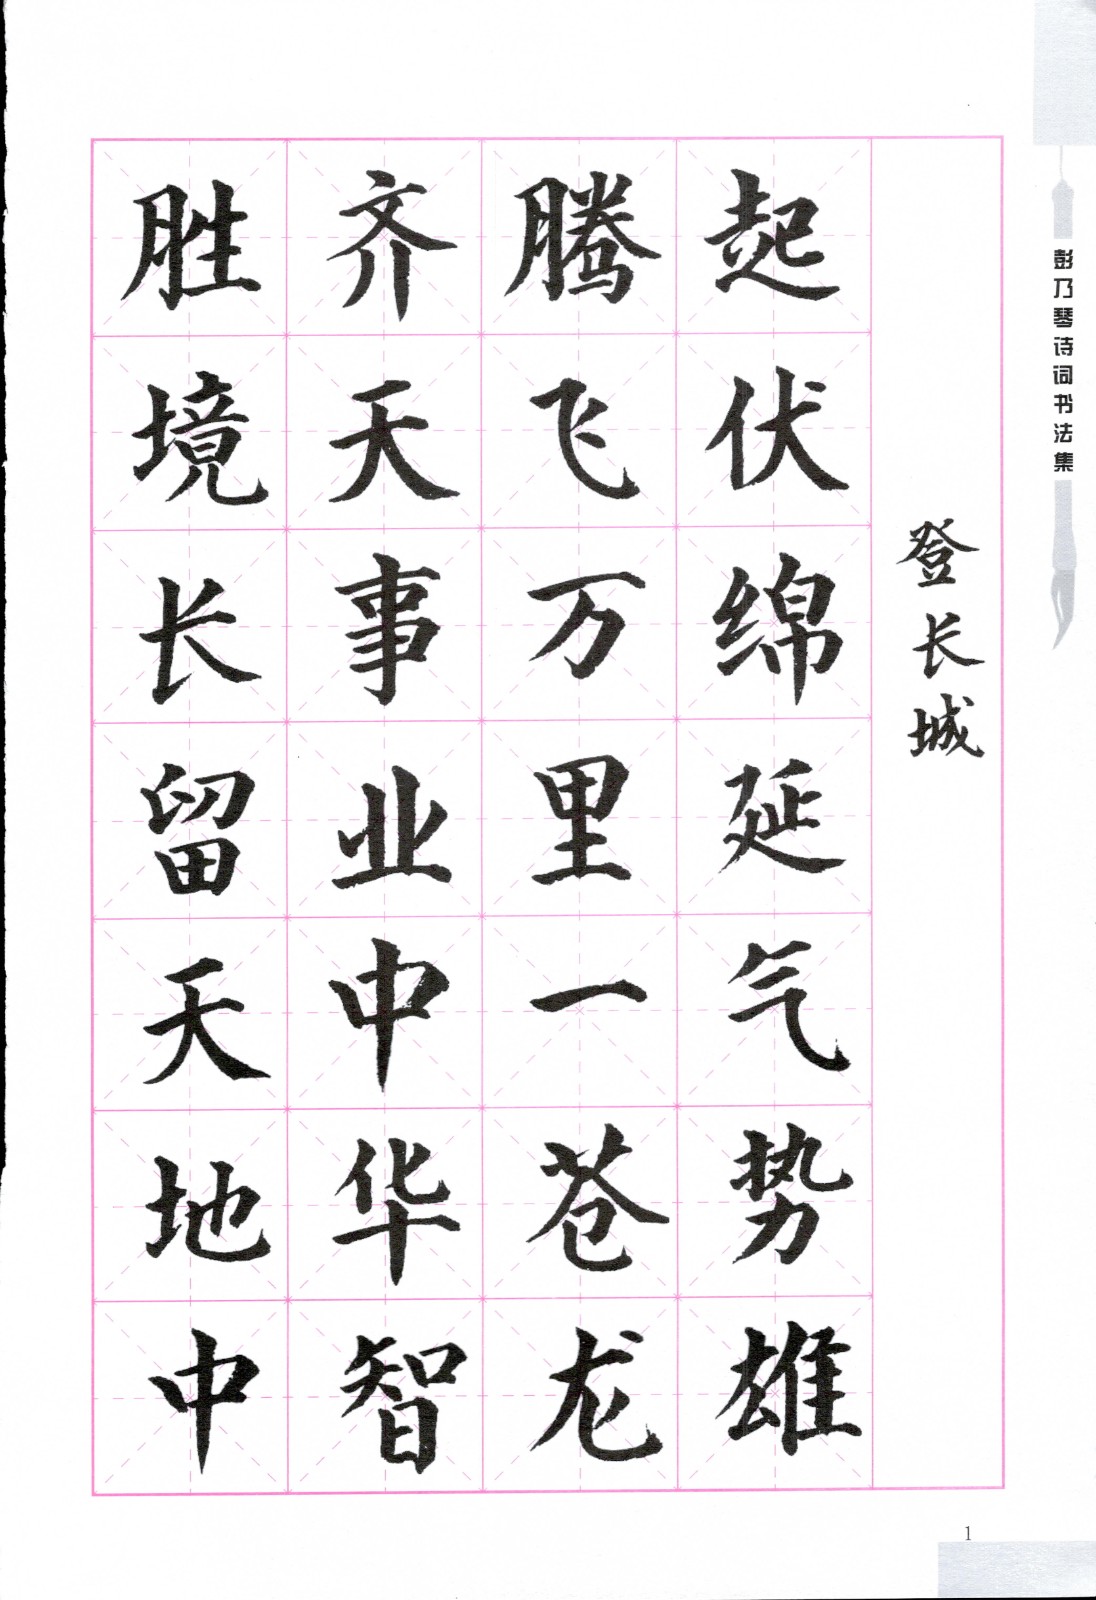 彭乃琴诗词书法集
登长城
起伏绵延气势雄
腾飞万里一苍龙
齐天事业中华智
胜境长留天地中
1